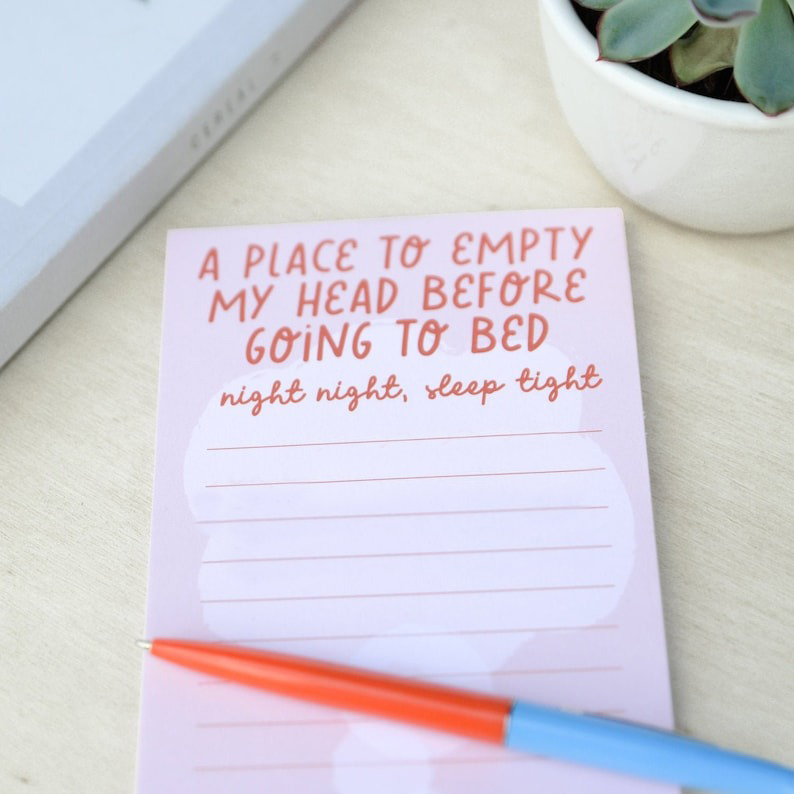 CEREAL
A PLACE TO EMPTY
MY HEAD BEFORE
GOING TO BED
night night, sleep tight